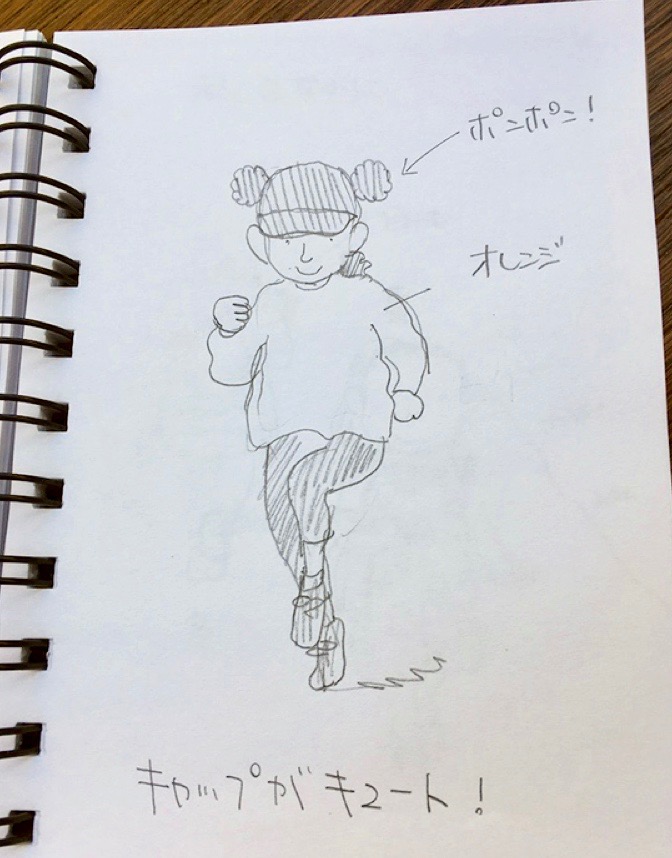 ポンポン!
オレンジ
キャップがキュート!